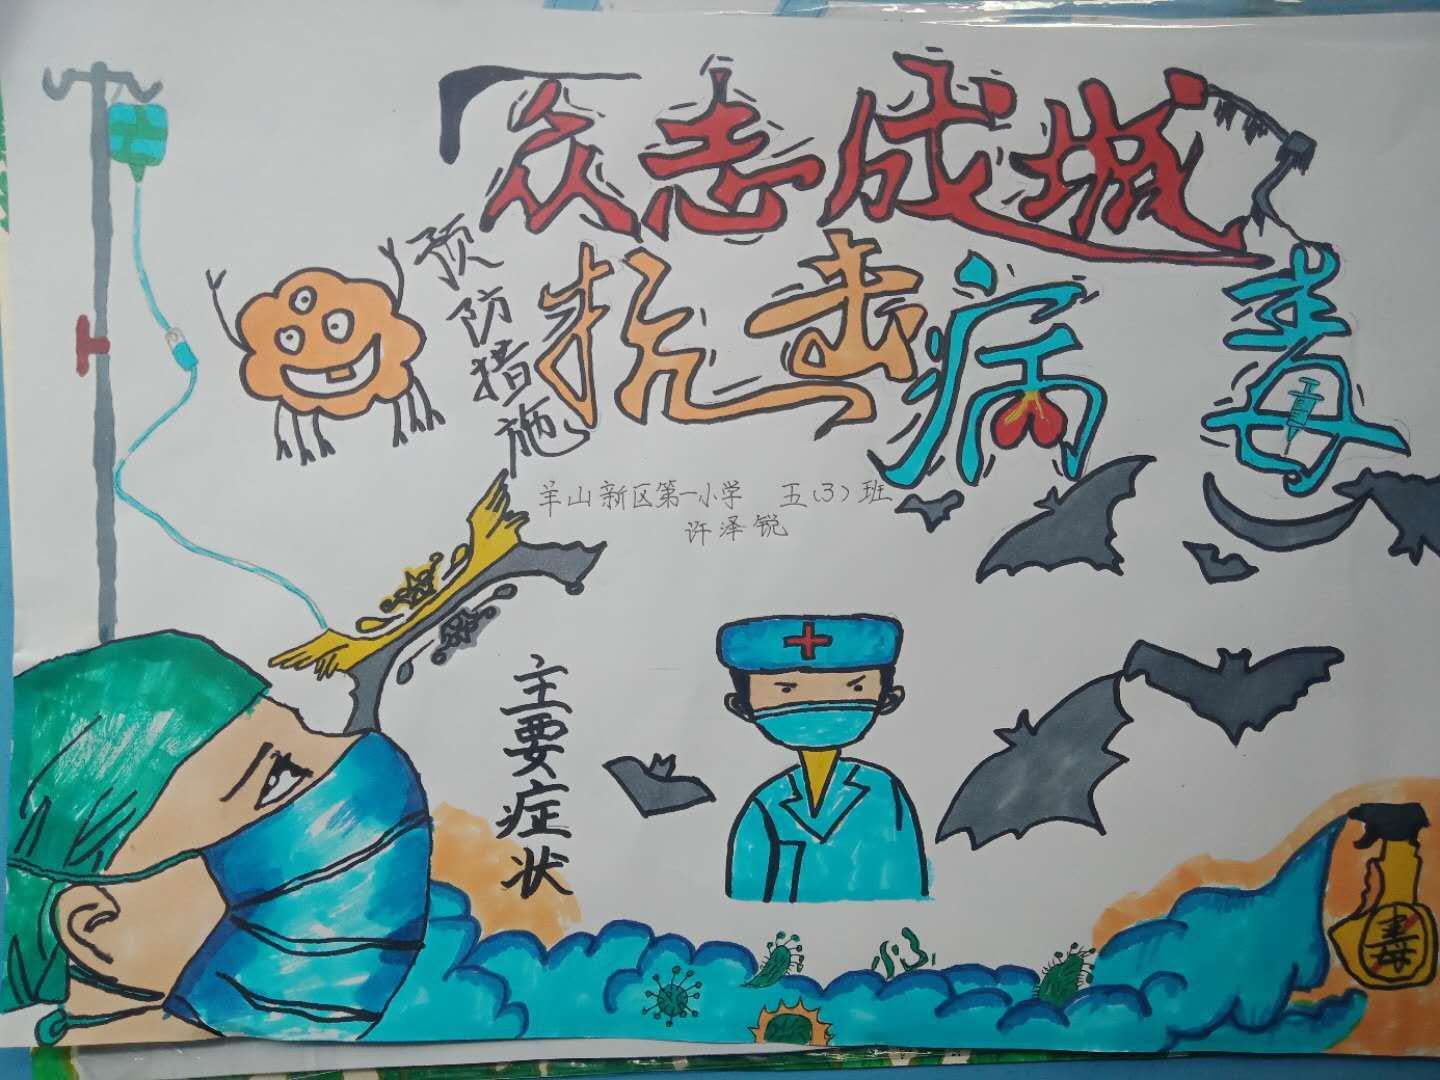 众志成城
抗击病毒
预防措施
羊山新区第一小学 五(3)班
许泽锐
主要症状
毒